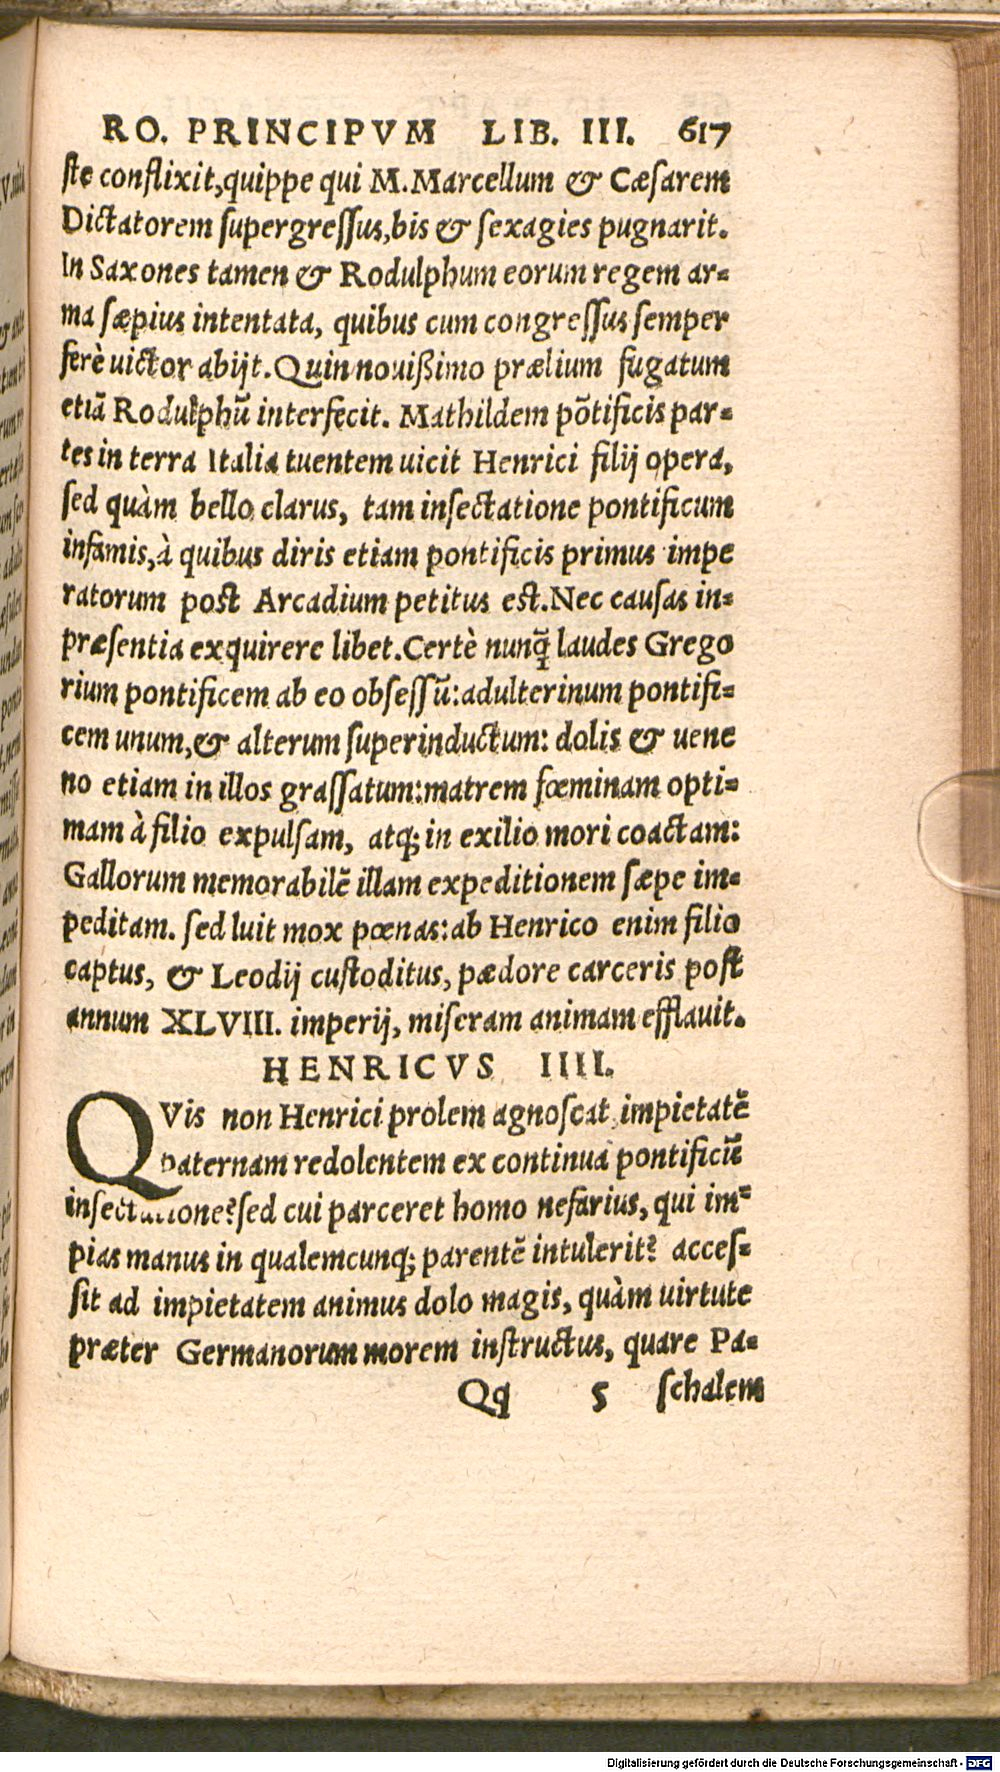 RO. PRINCIPVM LIB. III. 617
ſte conflixit,quippe qui M.Marcellum & Cæſarem
Dictatorem ſupergreſſus,bis & ſexagies pugnarit.
In Saxones tamen & Rodulphum eorum regem ar=
ma ſæpius intentata, quibus cum congreſſus ſemper
ferè uictor abijt.Quin nouißimo prælium fugatum
etiã Rodulphũ interfecit. Mathildem põtificis par=
tes in terra Italia tuentem uicit Henrici filij opera,
ſed quàm bello clarus, tam inſectatione pontificum
infamis,à quibus diris etiam pontificis primus impe
ratorum post Arcadium petitus est.Nec cauſas in=
præſentia exquirere libet.Certè nunq̃ laudes Grego
rium pontificem ab eo obſeſſũ:adulterinum pontifi=
cem unum,& alterum ſuperinductum: dolis & uene
no etiam in illos graſſatum:matrem fœminam opti=
mam à filio expulſam, atq; in exilio mori coactam:
Gallorum memorabilẽ illam expeditionem ſæpe im=
peditam. ſed luit mox pœnas:ab Henrico enim filio
captus, & Leodij cuſtoditus, pædore carceris poſt
annum XLVIII. imperij, miſeram animam efflauit.
HENRICVS IIII.
QVis non Henrici prolem agnoſcat impietatẽ
paternam redolentem ex continua pontificũ
inſectatione?ſed cui parceret homo nefarius, qui im=
pias manus in qualemcunq; parentẽ intulerit? acceſ=
ſit ad impietatem animus dolo magis, quàm uirtute
præter Germanorum morem inſtructus, quare Pa=
Qq 5 ſchalem
Digitalisierung gefördert durch die Deutsche Forschungsgemeinschaft - DFG